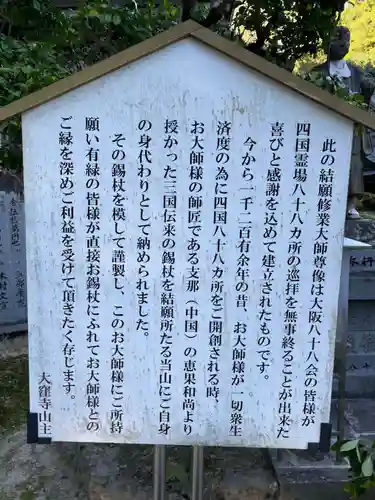 此の結願修業大師尊像は大阪八十八会の皆様が
四国霊場八十八カ所の巡拝を無事終ることが出来た
喜びと感謝を込めて建立されたものです。
今から一千二百有余年の昔、お大師様が一切衆生
済度の為に四国八十八カ所をご開創される時、
お大師様の師匠である支那(中国)の恵果和尚より
授かった三国伝来の錫杖を結願所たる当山にご自身
の身代わりとして納められました。
その錫杖を模して謹製し、このお大師様にご所持
願い有縁の皆様が直接お錫杖にふれてお大師様との
ご縁を深めご利益を受けて頂きたく存じます。
大窪寺山主